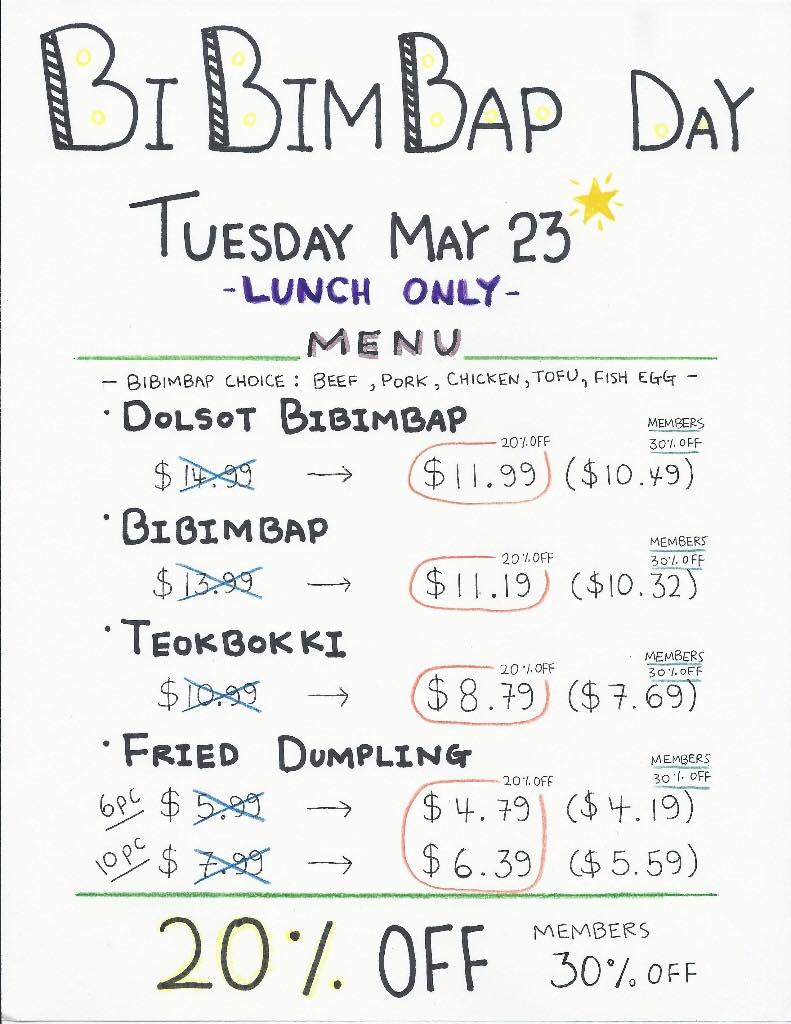 BIBIMBAP DAY
TUESDAY MAY 23
-LUNCH ONLY-
MENU
- BIBIMBAP CHOICE : BEEF , PORK , CHICKEN , TOFU , FISH EGG -
· DOLSOT BIBIMBAP
20% OFF MEMBERS 30% OFF
$ 14.99 → $11.99 ($10.49)
· BIBIMBAP
20% OFF MEMBERS 30% OFF
$ 13.99 → $11.19 ($10.32)
· TEOKBOKKI
20% OFF MEMBERS 30% OFF
$ 10.99 → $8.79 ($7.69)
· FRIED DUMPLING
20% OFF MEMBERS 30% OFF
6PC $ 5.99 → $4.79 ($4.19)
10PC $ 7.99 → $6.39 ($5.59)
20% OFF MEMBERS 30% OFF